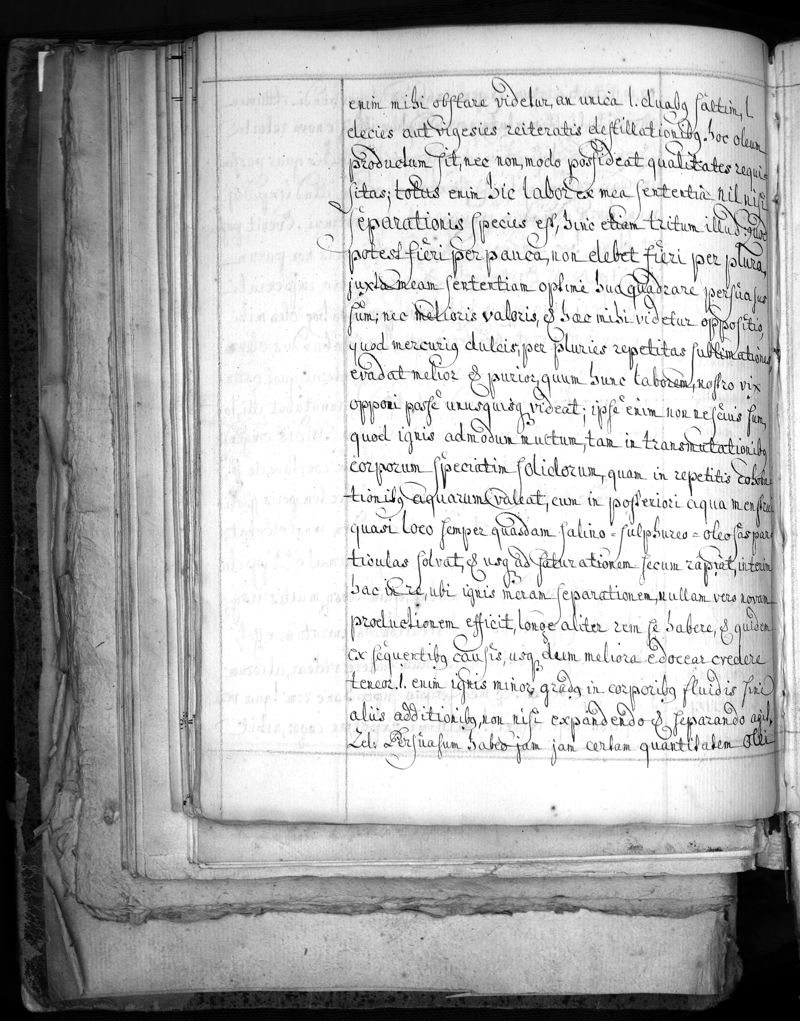 enim mihi obstare videtur, an unica l. duabq saltim, l
decies aut vigesies reiteratis destillationibq. hoc oleum
productum sit, nec non, modo possideat qualitates requi-
sitas; totus enim hic labor ex mea sententia nil nisi
separationis species est, hinc etiam tritum illud: quod
potest fieri per pauca, non debet fieri per plura,
juxta meam sententiam optime huc quadrare persuasus
sum; nec melioris valoris, & hac mihi videtur oppositio,
quod mercuriq dulcis, per pluries repetitas sublimationes
evadat melior & purior, quum hunc laborem, nostro vix
opponi posse unusquisq videat; ipse enim non nescius sum,
quod ignis admodum multum, tam in transmutationibq
corporum speciatim solidorum, quam in repetitis cohoba-
tionibq aquarum valeat, cum in posteriori aqua menstrui
quasi loco semper quasdam salino = sulphureo = oleosas par-
ticulas solvat, & usq ad saturationem secum rapiat, interim
hac in re, ubi ignis meram separationem, nullam vero novam
productionem efficit, longe aliter rem se habere, & quidem
ex sequentibq causis, usq dum meliora edocear credere
teneor. 1. enim ignis minor, gradq in corporibq fluidis sine
aliis additionibq, non nisi expandendo & separando agit,
2do Persuasum habeo jam jam certam quantitatem olei